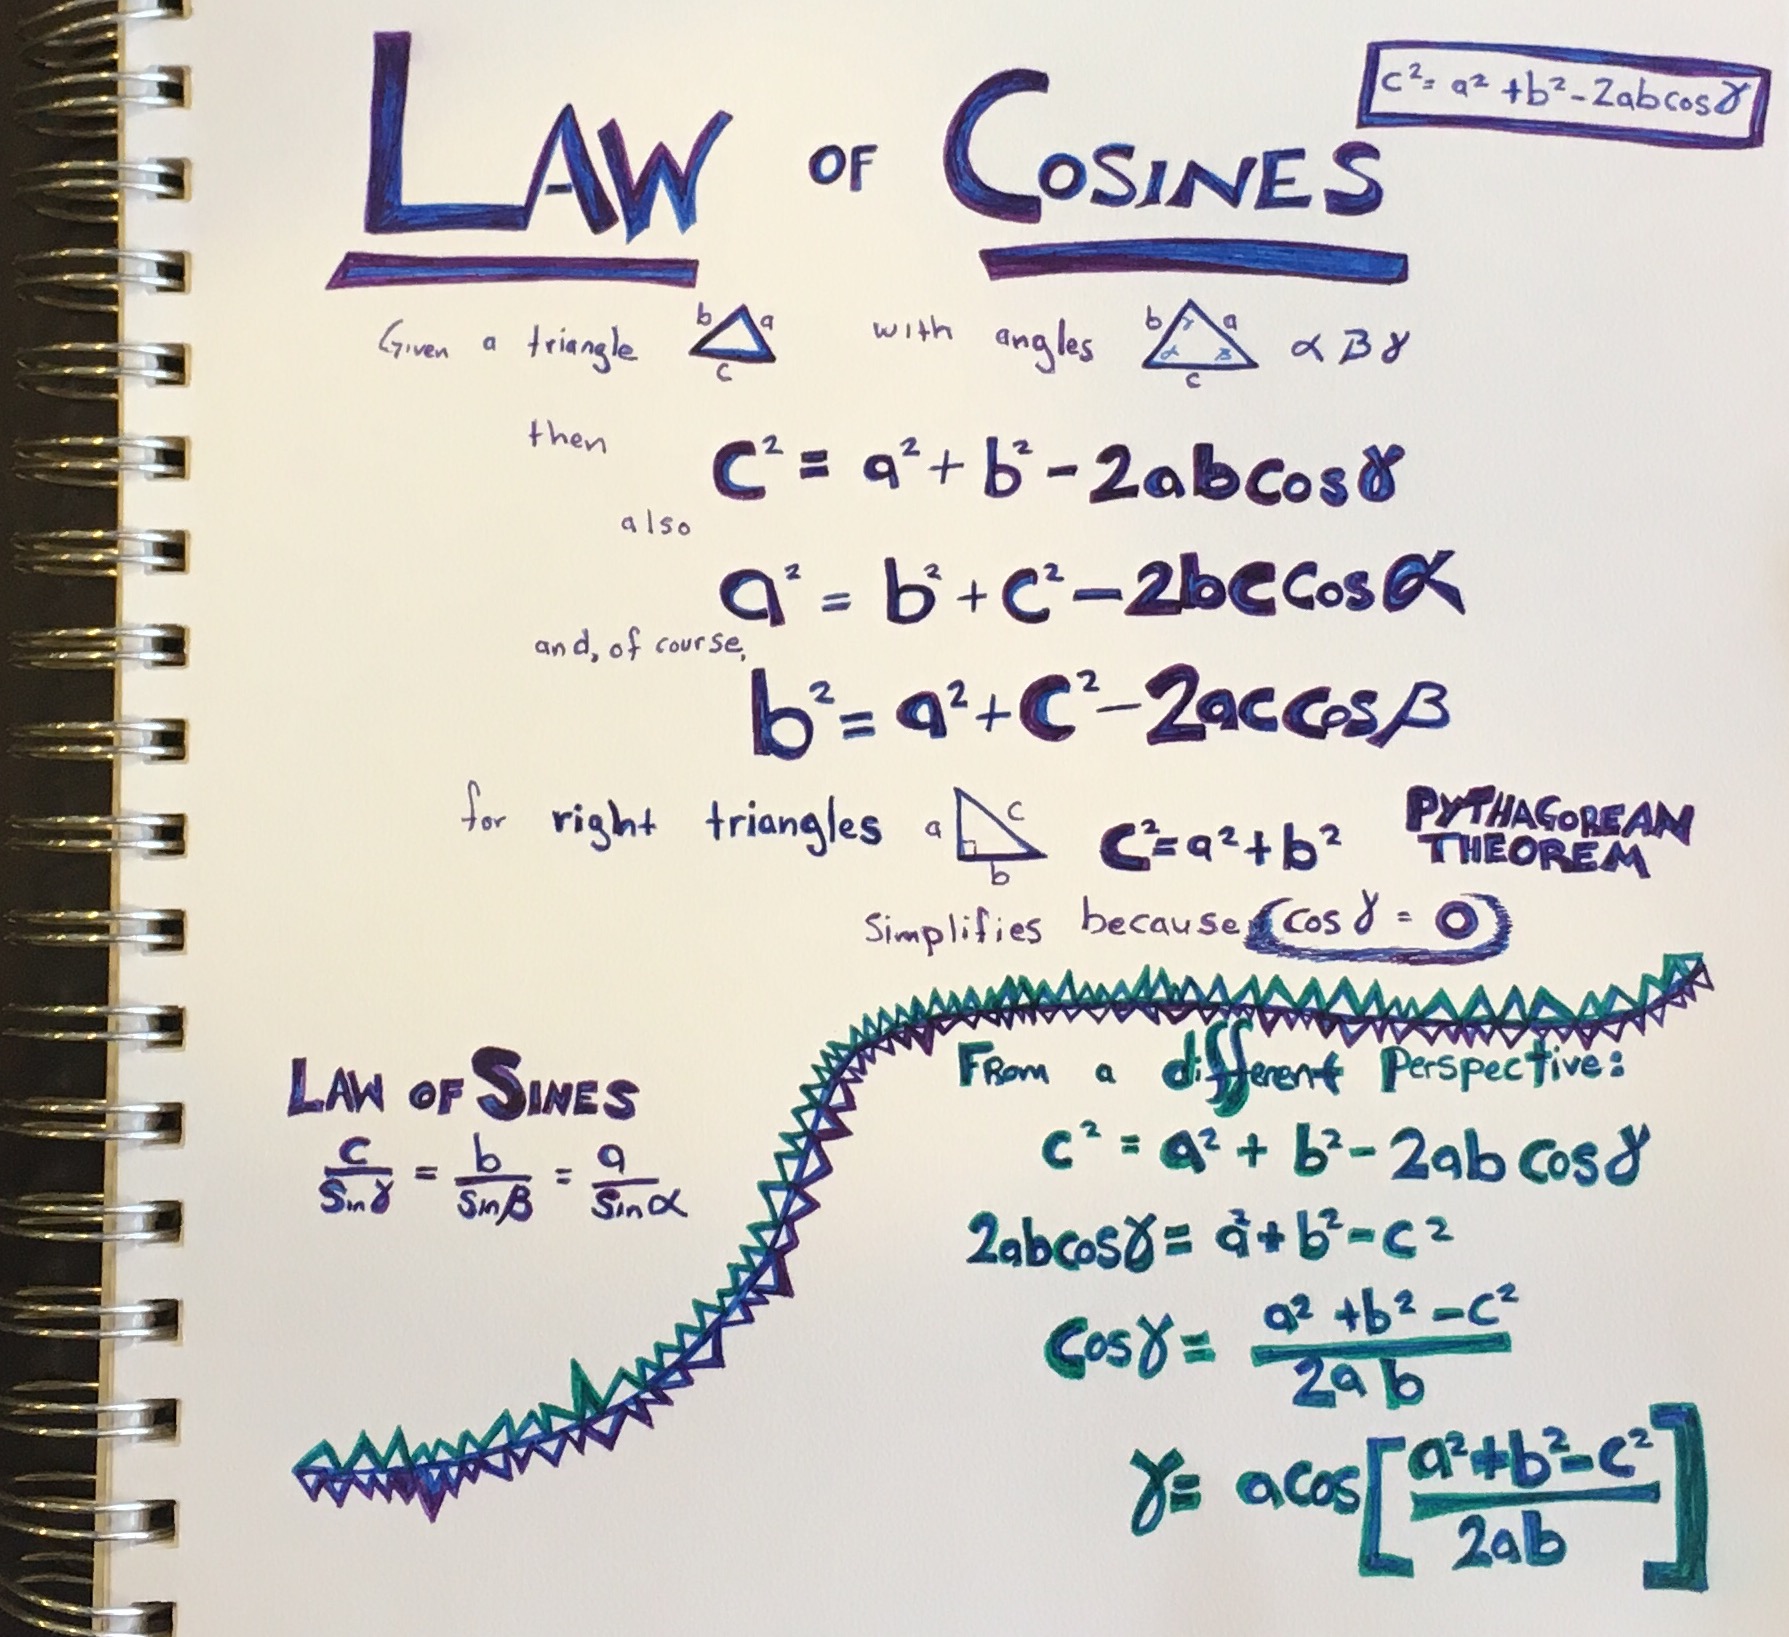 LAW OF COSINES
c² = a² + b² - 2abcosγ
Given a triangle b a c with angles b γ a α β c α β γ
then
c² = a² + b² - 2abcosγ
also
a² = b² + c² - 2bccosα
and, of course,
b² = a² + c² - 2accosβ
for right triangles a c b c² = a² + b² PYTHAGOREAN THEOREM
Simplifies because cosγ = 0
LAW OF SINES
c/sinγ = b/sinβ = a/sinα
From a different Perspective:
c² = a² + b² - 2ab cosγ
2abcosγ = a² + b² - c²
cosγ = a² + b² - c² / 2ab
γ = acos[a² + b² - c² / 2ab]